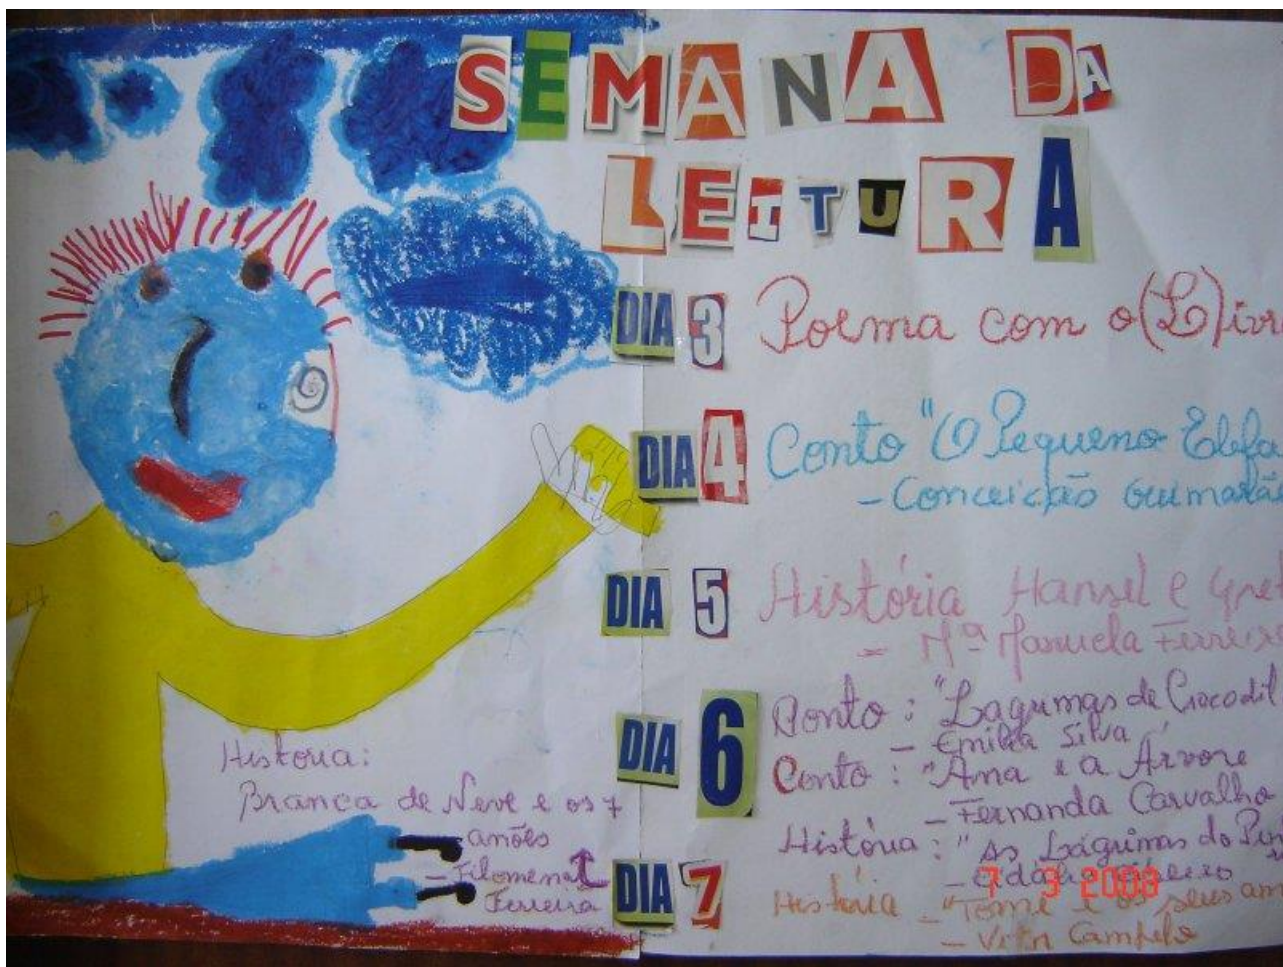 SEMANA DA
LEITURA
DIA 3 Poema com o (L)ivr
DIA 4 Conto "O Pequeno Elefa
- Conceição Guimarã
DIA 5 História Hansel e Gret
- Mª Manuela Ferreir
DIA 6 Conto: "Lagrimas de Crocodil
- Emília Silva
Conto: "Ana e a Árvore
- Fernanda Carvalho
História: "As Lágrimas do
DIA 7 História - "Tomé e os seus am
- Vitor Campelo
História:
Branca de Neve e os 7
anões
- Filomena
Ferreira
7 3 2008